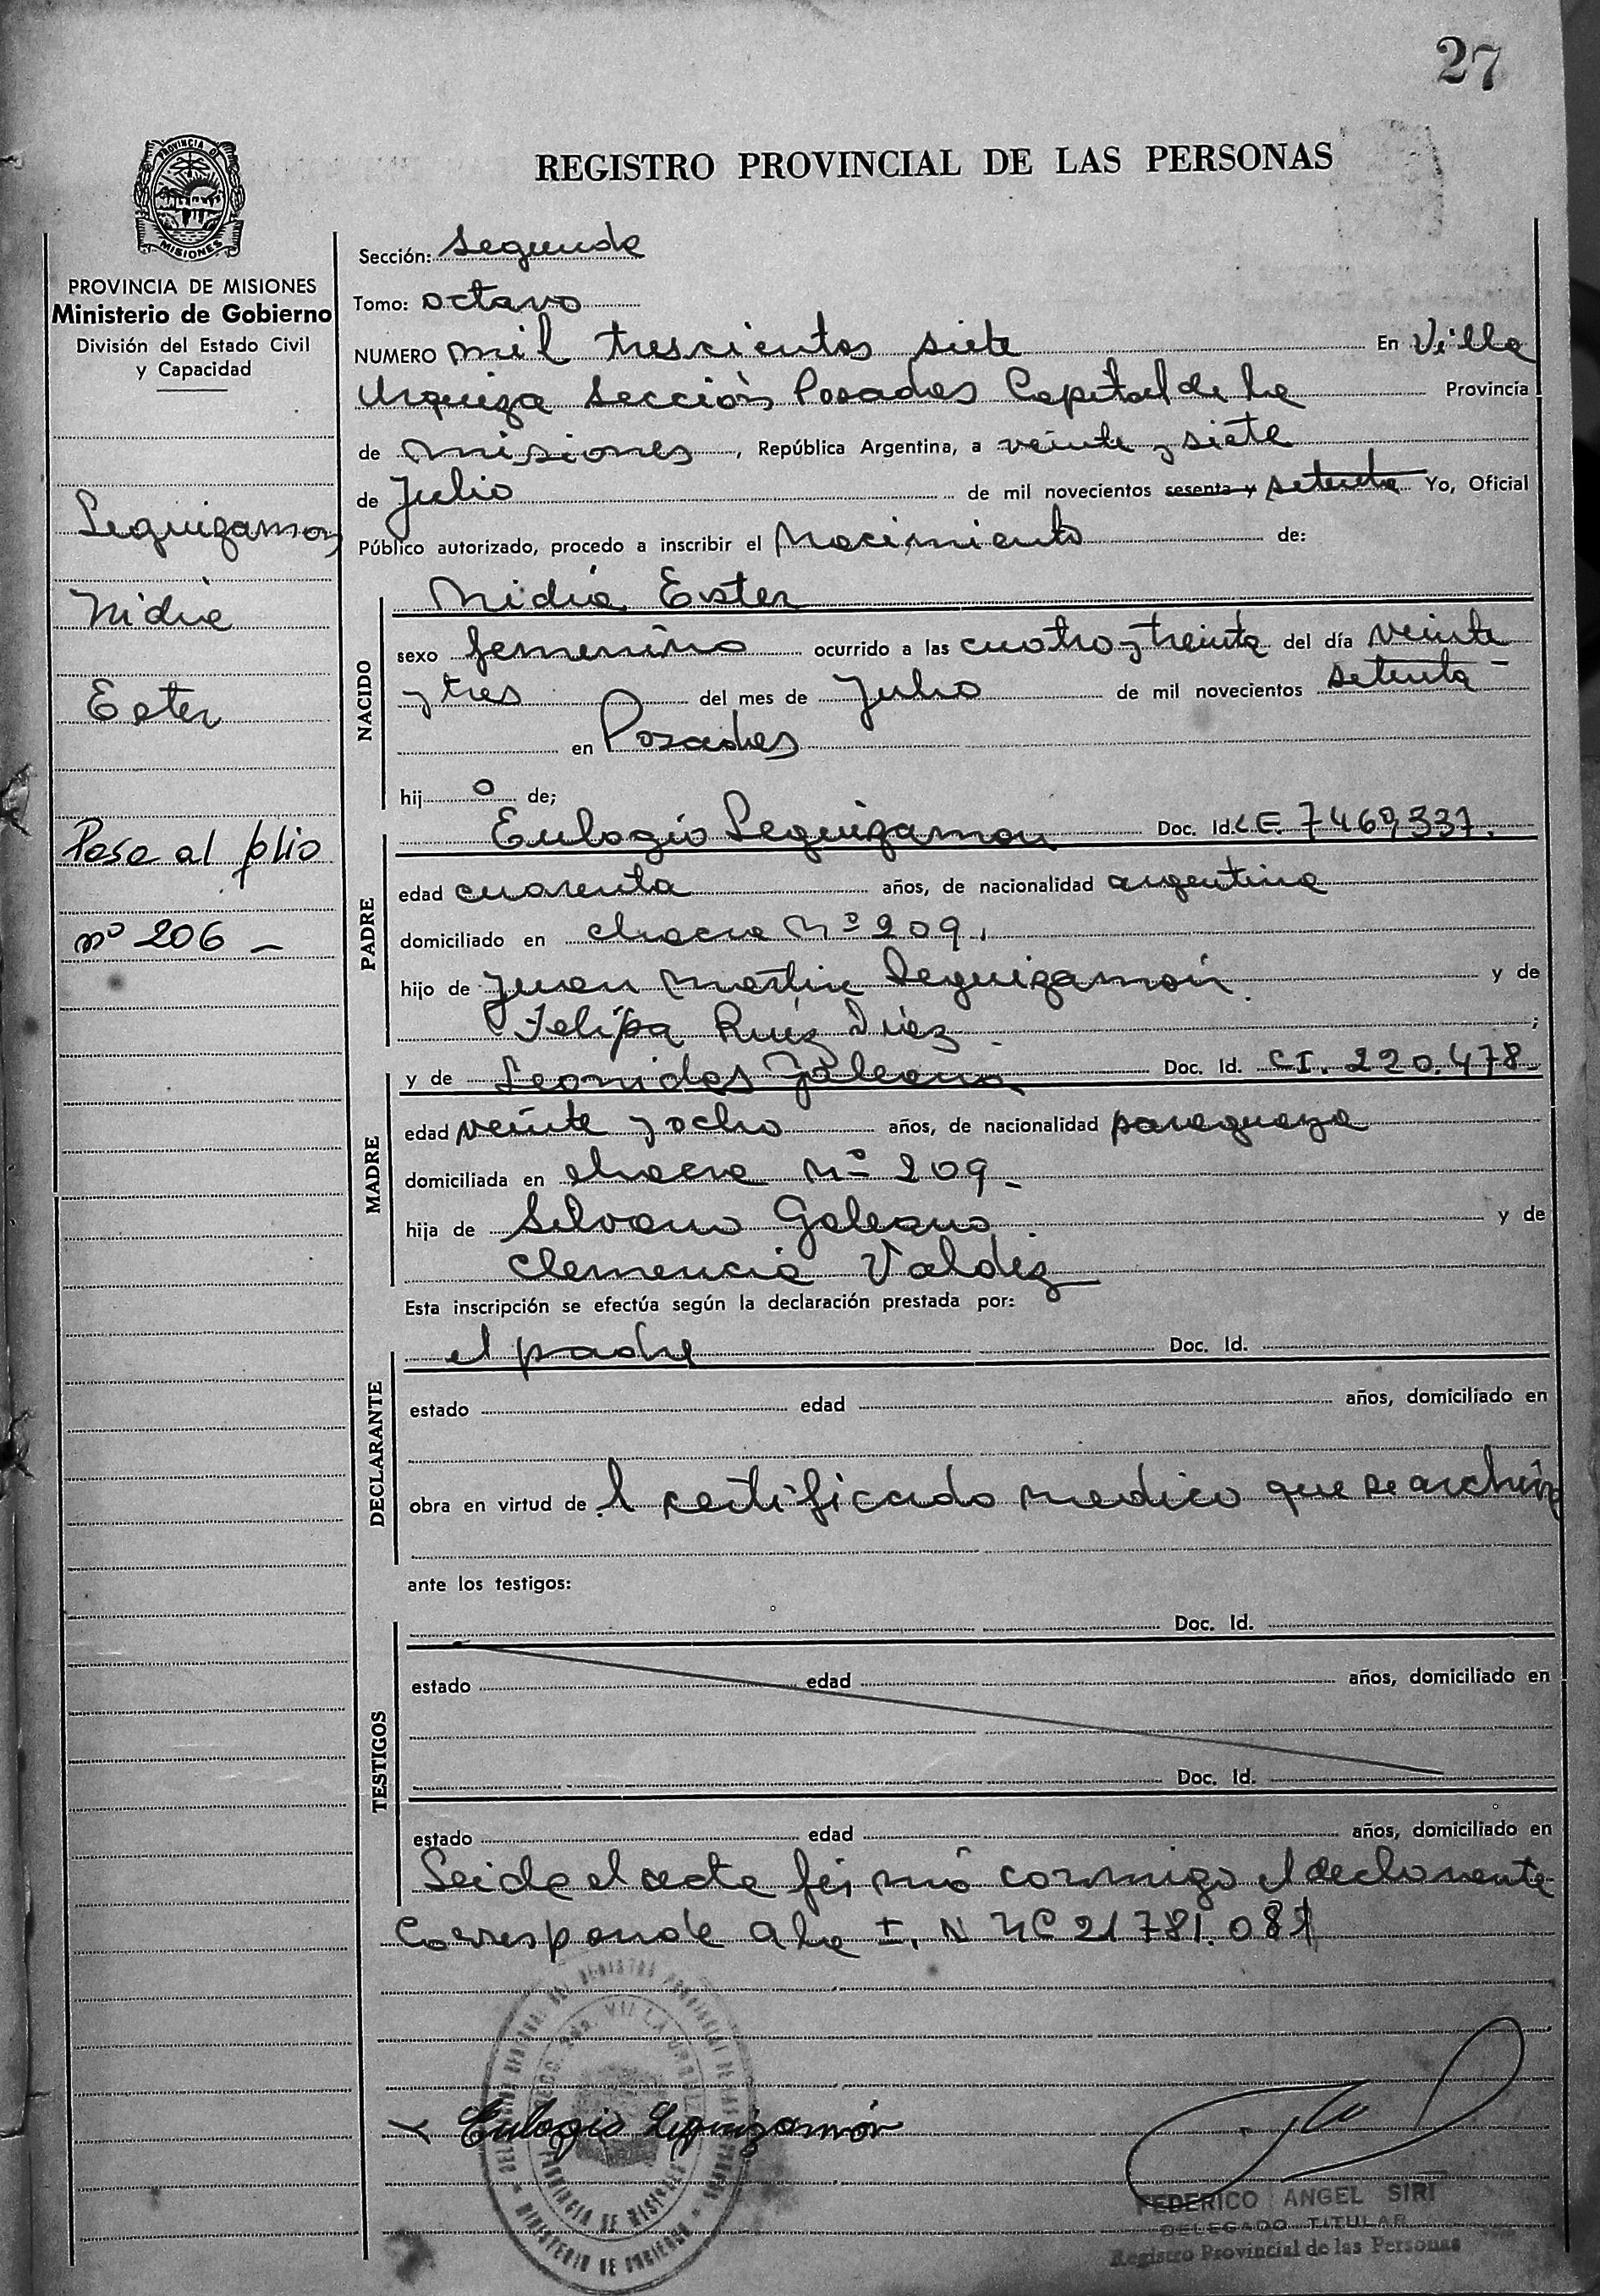 27
REGISTRO PROVINCIAL DE LAS PERSONAS
PROVINCIA DE MISIONES
Ministerio de Gobierno
División del Estado Civil
y Capacidad
Leguizamon
Nidia
Ester
Pasa al folio
nº 206 -
Sección: Segunda
Tomo: octavo
NUMERO mil trescientos siete En Villa
Urquiza Sección Posadas Capital de la Provincia
de misiones, República Argentina, a veinte y siete
de Julio de mil novecientos sesenta y setenta Yo, Oficial
Público autorizado, procedo a inscribir el Nacimiento de:
NACIDO
Nidia Ester
sexo femenino ocurrido a las cuatro y treinta del día veinte
y tres del mes de Julio de mil novecientos setenta -
en Posadas
hij o de;
PADRE
Eulogio Leguizamon Doc. Id. LE. 7469,337.
edad cuarenta años, de nacionalidad argentina
domiciliado en chacra Nº 209.
hijo de Juan Martin Leguizamón y de
Felipa Ruiz Diez ;
MADRE
y de Leonidas Galeano Doc. Id. CI. 220.478
edad veinte y ocho años, de nacionalidad paraguaya
domiciliada en chacra Nº 209 -
hija de Silvano Galeano y de
Clemencia Valdez
Esta inscripción se efectúa según la declaración prestada por:
DECLARANTE
el padre Doc. Id.
estado edad años, domiciliado en
obra en virtud de l certificado medico que se archiva
ante los testigos:
TESTIGOS
Doc. Id.
estado edad años, domiciliado en
Doc. Id.
estado edad años, domiciliado en
Leida el acta firmó conmigo el declarante
Corresponde a la I. N 21781.081
Eulogio Leguizamón
FEDERICO ANGEL SIRI
DELEGADO TITULAR
Registro Provincial de las Personas